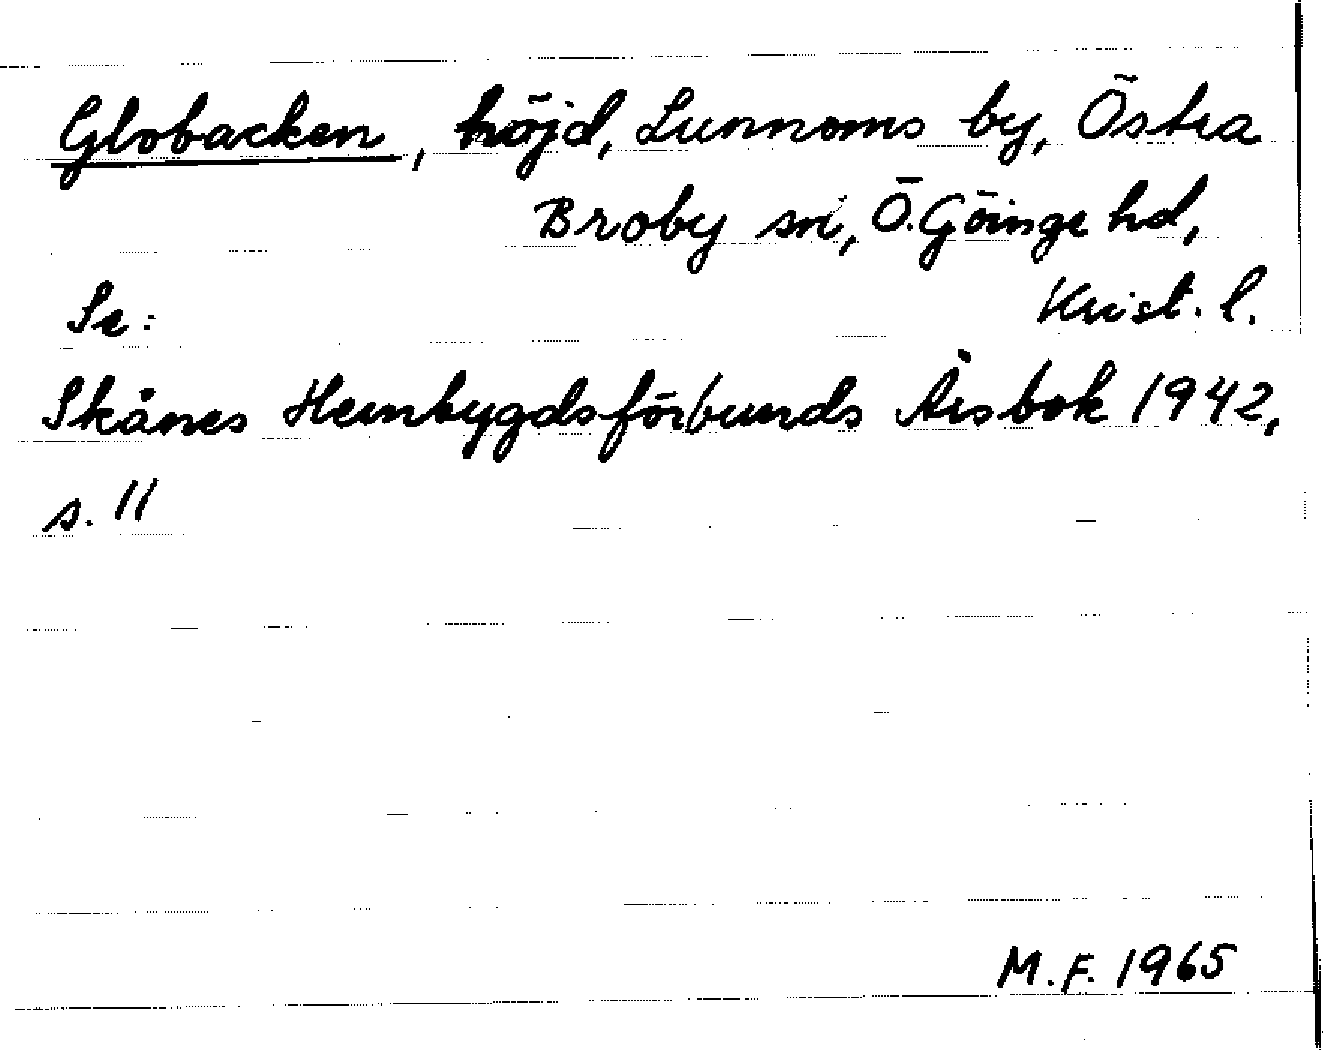 Globacken, höjd, Lunnoms by, Östra
Broby sn, Ö. Göinge hd,
Se: Krist. l.
Skånes Hembygdsförbunds Årsbok 1942,
s. 11
M.F. 1965